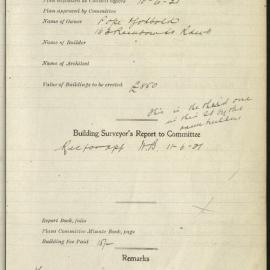 Plan submitted to Council offices 10-6-21
Plan approved by Committee
Name of Owner Pope
Name of Builder
Name of Architect
Value of Buildings to be erected £850
this is the third one
in this St by the
same builders
Building Surveyor's Report to Committee
W.B. 11-6-21
Report Book, folio
Plans Committee Minute Book, page
Building Fee Paid 15/-
Remarks